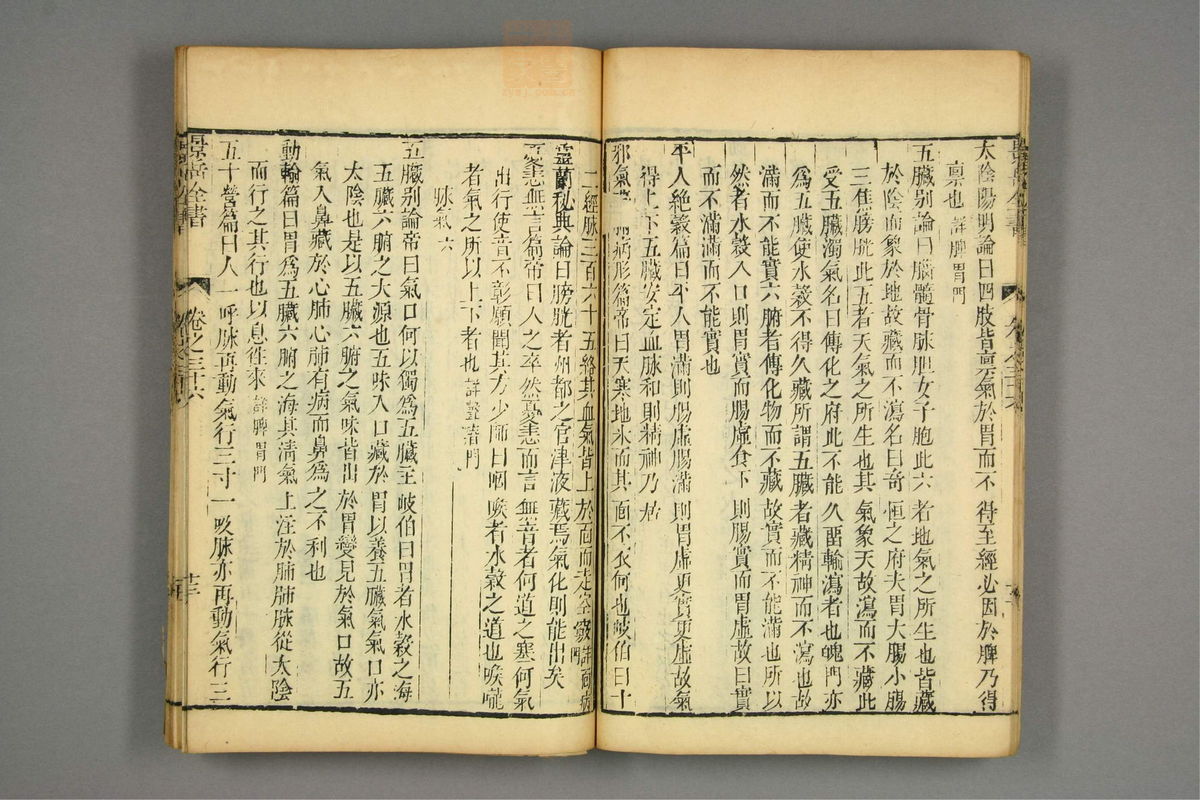 太陰陽明論曰四肢皆稟氣於胃而不得至經必因於脾乃得
稟也詳脾胃門
五臟別論曰腦髓骨脉胆女子胞此六者地氣之所生也皆藏
於陰而象於地故藏而不瀉名曰奇恒之府夫胃大腸小腸
三焦膀胱此五者天氣之所生也其氣象天故瀉而不藏此
受五臟濁氣名曰傳化之府此不能久留輸瀉者也魄門亦
爲五臟使水穀不得久藏所謂五臟者藏精神而不瀉也故
滿而不能實六腑者傳化物而不藏故實而不能滿也所以
然者水穀入口則胃實而腸虛食下則腸實而胃虛故曰實
而不滿滿而不能實也
平人絕穀篇曰平人胃滿則腸虛腸滿則胃虛更實更虛故氣
得上下五臟安定血脉和則精神乃居
邪氣 病形篇帝曰天寒地氷而其面不衣何也岐伯曰十
二經脉三百六十五絡其血氣皆上於面而走空竅詳 病門
靈蘭秘典論曰膀胱者州都之官津液藏焉氣化則能出矣
憂恚無言篇帝曰人之卒然憂恚而言無音者何道之塞何氣
出行使音不彰願聞其方少師曰咽喉者水穀之道也喉嚨
者氣之所以上下者也詳聲瘖門
脉氣六
五臟別論帝曰氣口何以獨爲五臟主岐伯曰胃者水穀之海
五臟六腑之大源也五味入口藏於胃以養五臟氣氣口亦
太陰也是以五臟六腑之氣味皆出於胃變見於氣口故五
氣入鼻藏於心肺心肺有病而鼻爲之不利也
動輸篇曰胃爲五臟六腑之海其清氣上注於肺肺脉從太陰
而行之其行也以息往來詳脾胃門
五十營篇曰人一呼脉再動氣行三寸一吸脉亦再動氣行三
景岳全書
卷之三
十三